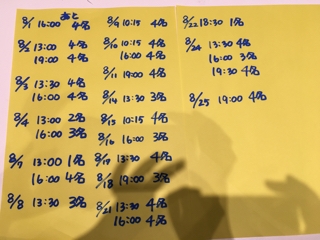 あと
8/1 16:00 4名
8/2 13:00 4名
19:00 4名
8/3 13:30 4名
16:00 4名
8/4 13:00 2名
16:00 3名
8/7 13:00 1名
16:00 4名
8/8 13:30 3名
8/9 10:15 4名
8/10 10:15 4名
16:00 4名
8/11 19:00 4名
8/14 13:30 3名
8/15 10:15 4名
8/16 16:00 3名
8/17 13:30 4名
8/18 19:00 3名
8/21 13:30 4名
16:00 4名
8/22 18:30 1名
8/24 13:30 4名
16:00 3名
19:30 4名
8/25 19:00 4名